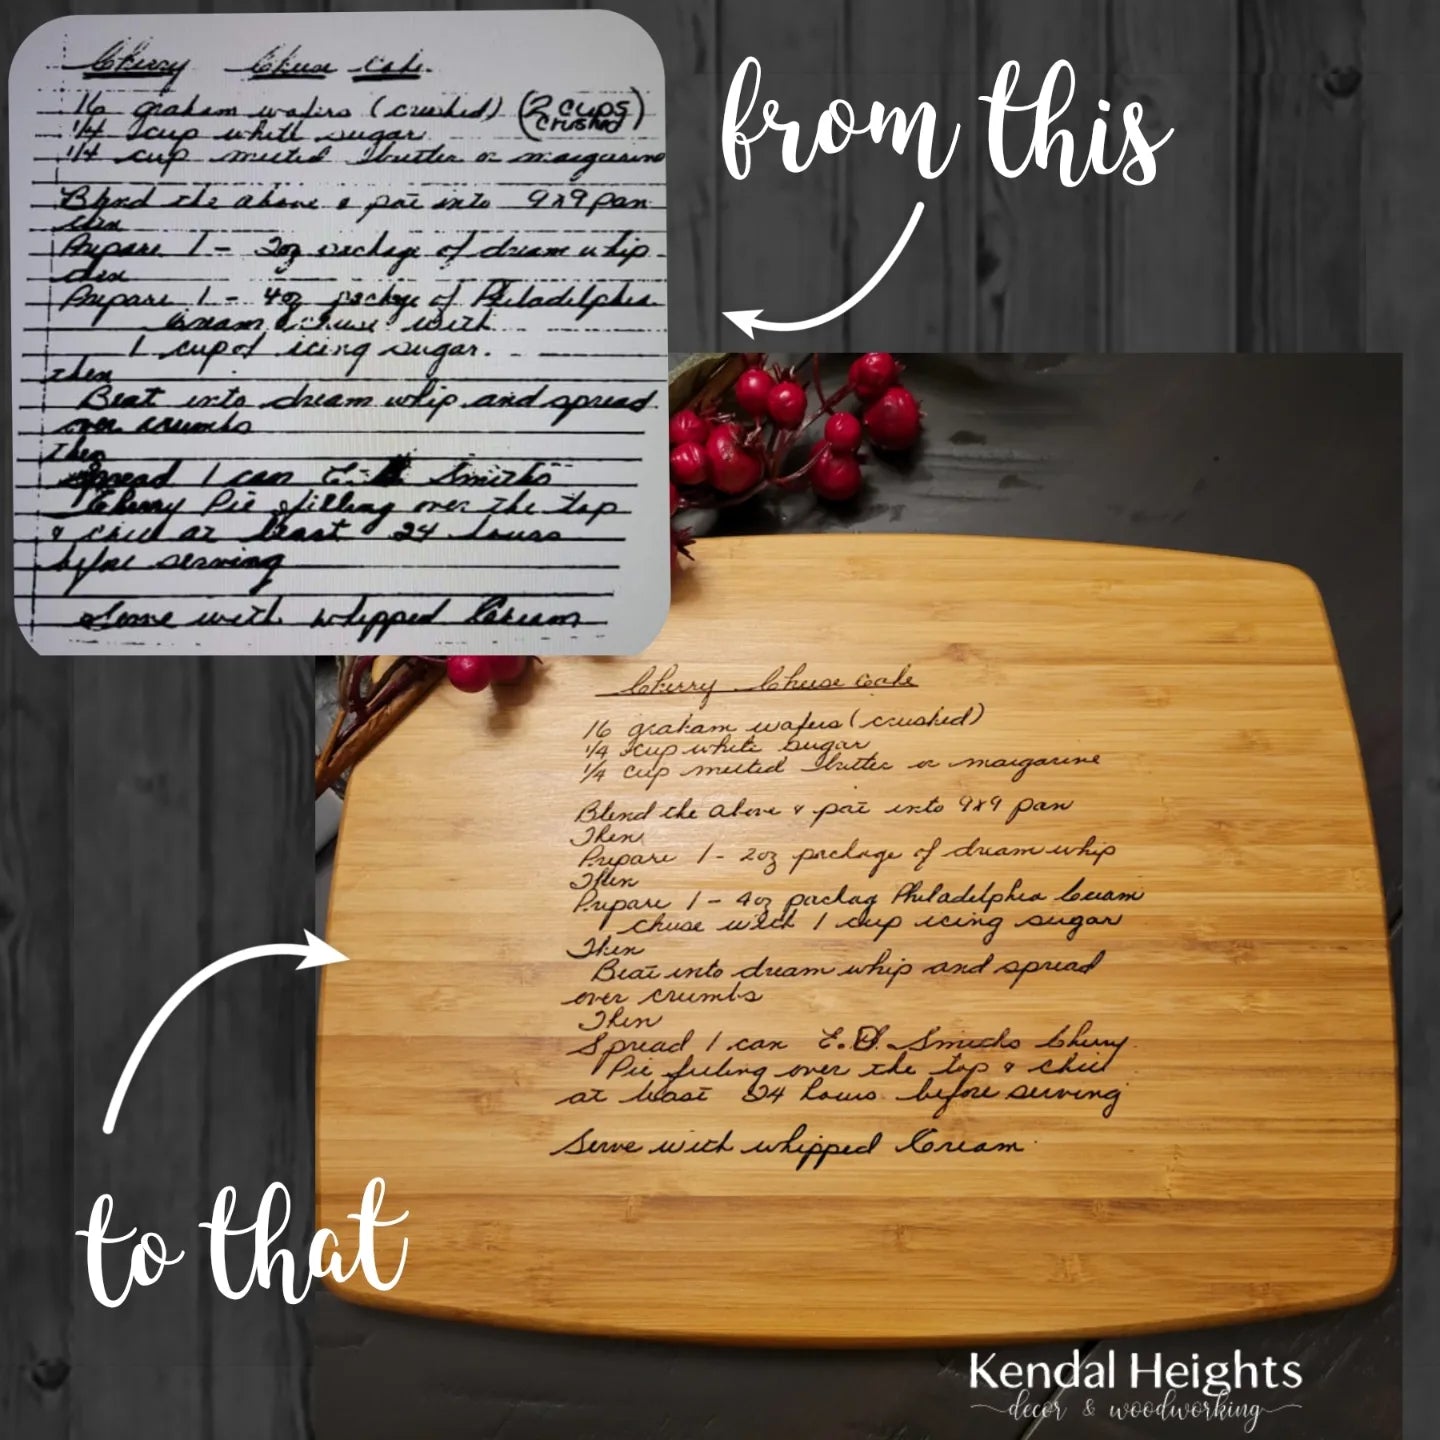 Cherry Cheese Cake
16 graham wafers (crushed) (2 cups
crushed)
1/4 cup white sugar
1/4 cup melted butter or margarine
Blend the above & pat into 9x9 pan
then
Prepare 1 - 2oz package of dream whip
then
Prepare 1 - 4oz package of Philadelphia
Cream cheese with
1 cup of icing sugar.
then
Beat into dream whip and spread
over crumbs
Then
Spread 1 can E. Smiths
Cherry Pie filling over the top
& chill at least 24 hours
before serving
Serve with whipped Cream
from this
Cherry Cheese Cake
16 graham wafers (crushed)
1/4 cup white sugar
1/4 cup melted butter or margarine
Blend the above & pat into 9x9 pan
Then
Prepare 1 - 2oz package of dream whip
Then
Prepare 1 - 4oz packag Philadelphia Cream
cheese with 1 cup icing sugar
Then
Beat into dream whip and spread
over crumbs
Then
Spread 1 can E.D. Smiths Cherry
Pie filling over the top & chill
at least 24 hours before serving
Serve with whipped Cream
to that
Kendal Heights
decor & woodworking